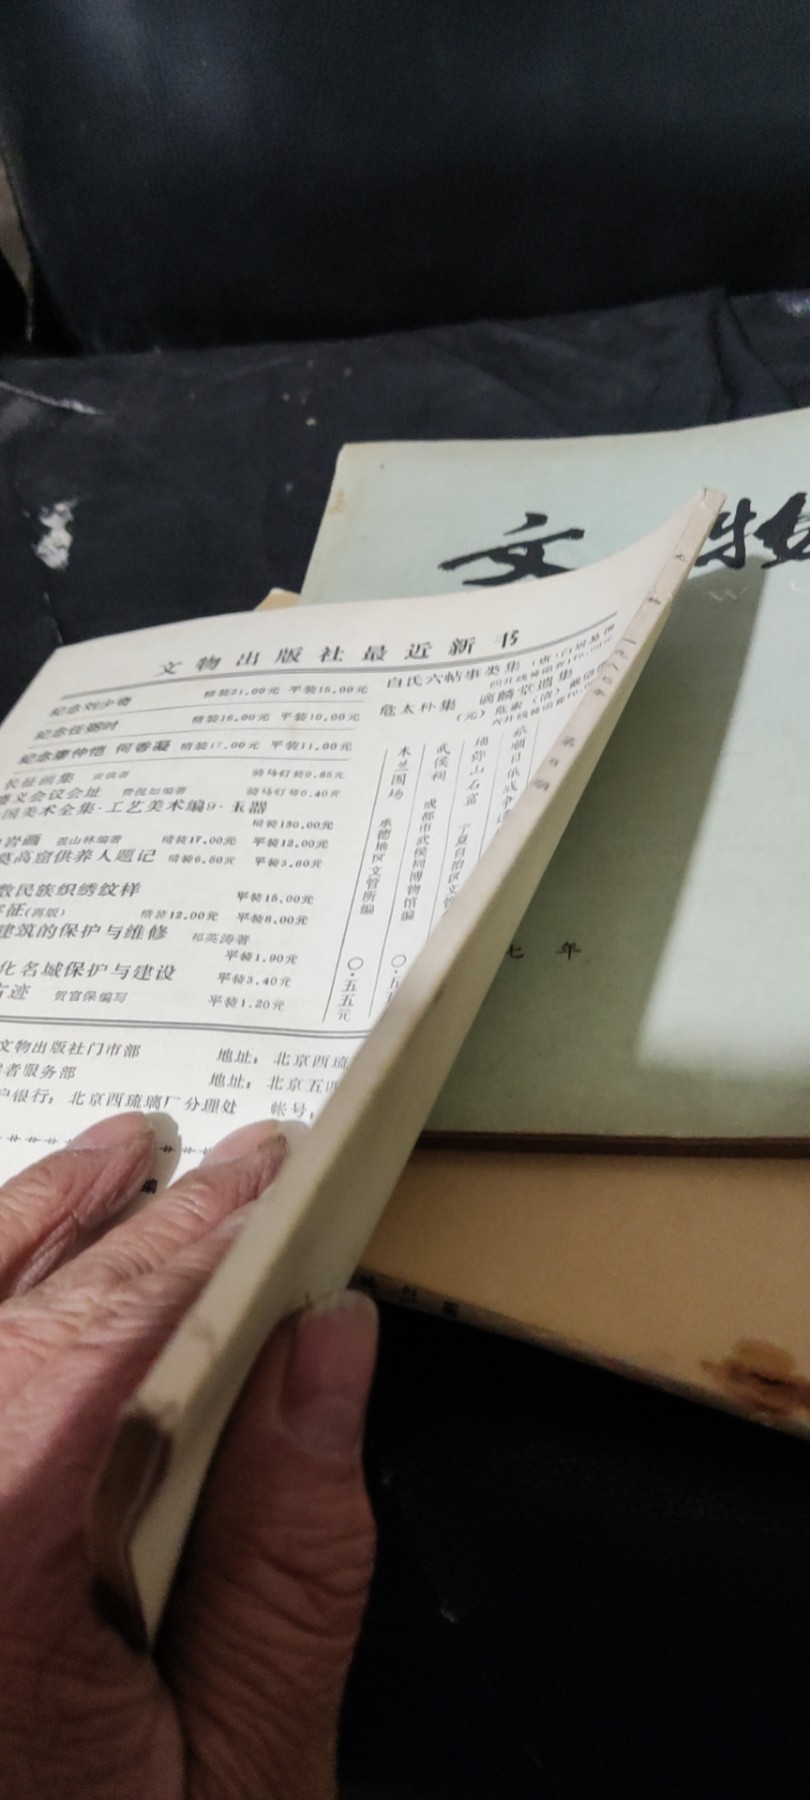 文物
七年
文物出版社最近新书
纪念刘少奇 精装21.00元 平装15.00元
纪念任弼时 精装16.00元 平装10.00元
纪念廖仲恺 何香凝 精装17.00元 平装11.00元
长征画集 黄镇著 骑马钉装0.85元
遵义会议会址 费侃如编著 骑马钉装0.40元
国美术全集·工艺美术编9·玉器
精装130.00元
岩画 盖山林编著 精装17.00元 平装12.00元
莫高窟供养人题记 精装6.50元 平装3.60元
数民族织绣纹样 平装15.00元
征(再版) 精装12.00元 平装8.00元
建筑的保护与维修 祁英涛著
平装1.90元
化名城保护与建设 平装3.40元
古迹 贺官保编写 平装1.20元
白氏六帖事类集
危太朴集
(元)危素
木兰围场 承德地区文管所编 〇·五五元
武侯祠 成都市武侯祠博物馆编
须弥山石窟 宁夏自治区文管
文物出版社门市部 地址：北京西琉
者服务部 地址：北京五四
户银行：北京西琉璃厂分理处 帐号：